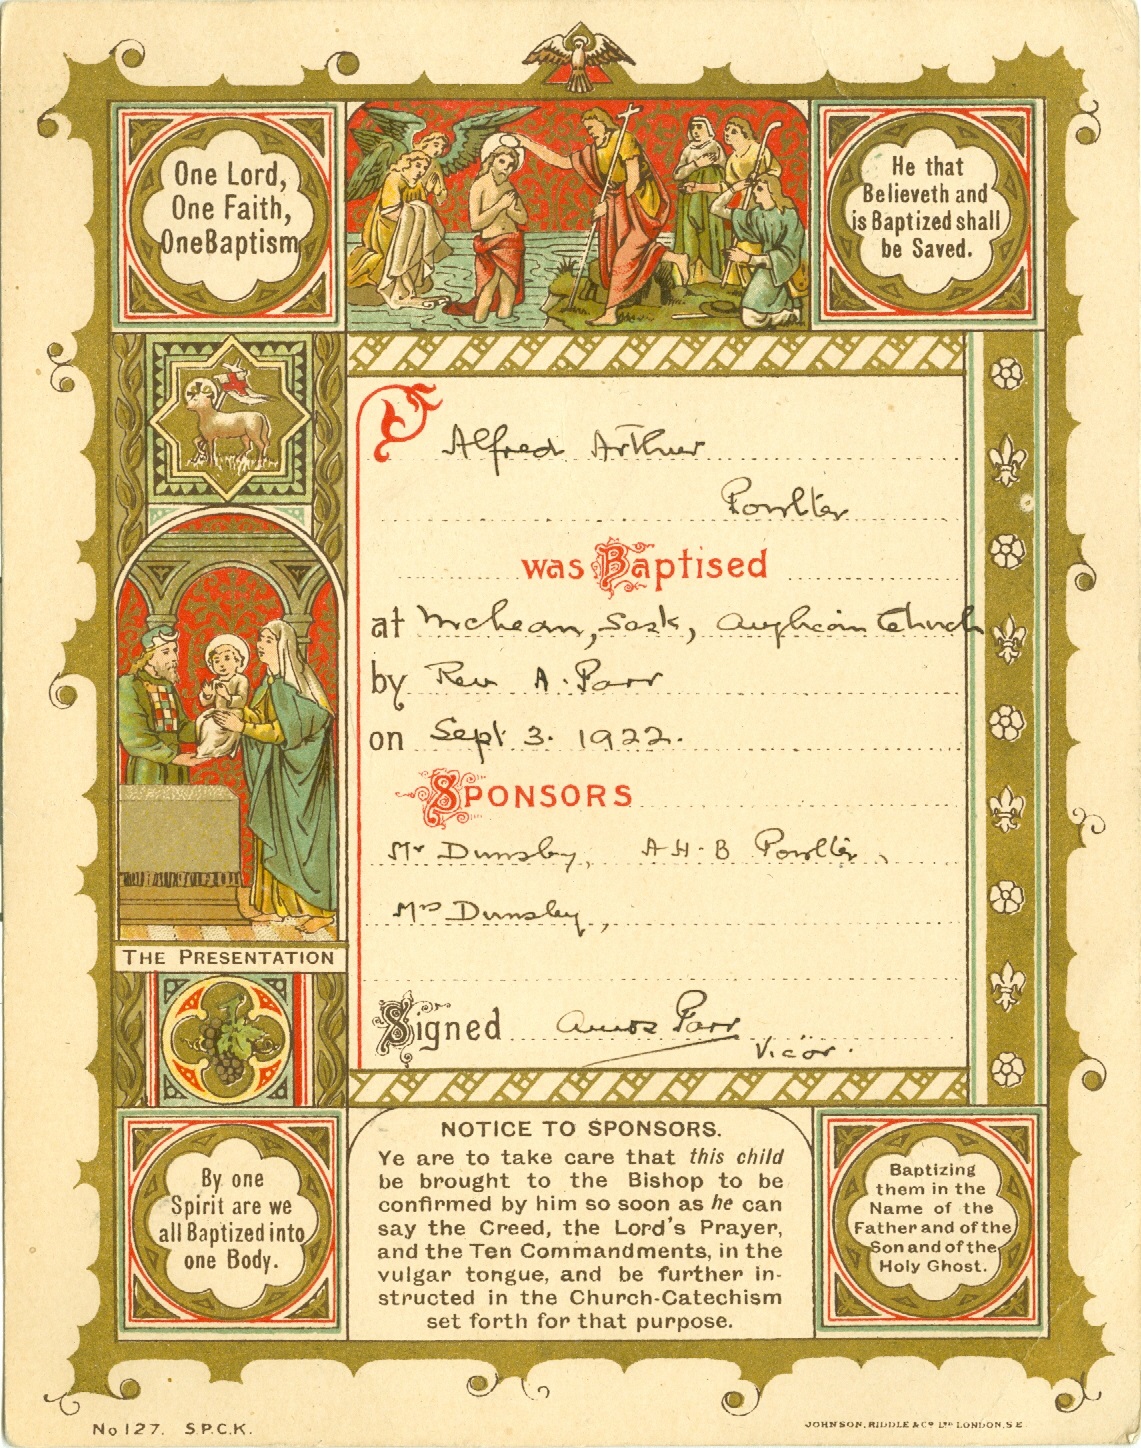 One Lord,
One Faith,
One Baptism
He that
Believeth and
is Baptized shall
be Saved.
Alfred Arthur
Poulter
was Baptised
at McLean, Sask, Anglican Church
by Rev A. Parr
on Sept 3. 1922.
SPONSORS
Mr Dunsby, A H. B Poulter,
Mrs Dunsby,
THE PRESENTATION
Signed Amos Parr
Vicar.
NOTICE TO SPONSORS.
Ye are to take care that this child
be brought to the Bishop to be
confirmed by him so soon as he can
say the Creed, the Lord's Prayer,
and the Ten Commandments, in the
vulgar tongue, and be further in-
structed in the Church-Catechism
set forth for that purpose.
By one
Spirit are we
all Baptized into
one Body.
Baptizing
them in the
Name of the
Father and of the
Son and of the
Holy Ghost.
No 127. S.P.C.K.
JOHNSON, RIDDLE & Co LTD LONDON, S.E